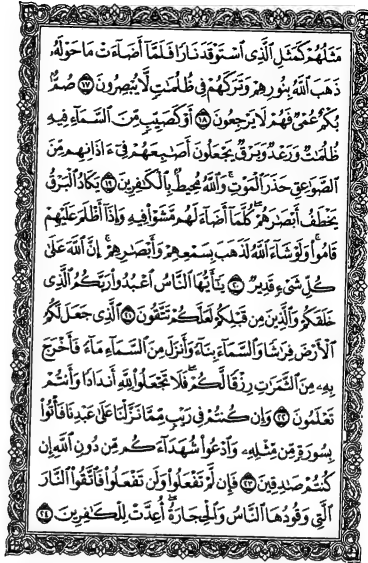 مَثَلُهُمْ كَمَثَلِ ٱلَّذِى ٱسْتَوْقَدَ نَارًا فَلَمَّآ أَضَآءَتْ مَا حَوْلَهُۥ
ذَهَبَ ٱللَّهُ بِنُورِهِمْ وَتَرَكَهُمْ فِى ظُلُمَٰتٍ لَّا يُبْصِرُونَ ١٧ صُمٌّۢ
بُكْمٌ عُمْىٌ فَهُمْ لَا يَرْجِعُونَ ١٨ أَوْ كَصَيِّبٍ مِّنَ ٱلسَّمَآءِ فِيهِ
ظُلُمَٰتٌ وَرَعْدٌ وَبَرْقٌ يَجْعَلُونَ أَصَٰبِعَهُمْ فِىٓ ءَاذَانِهِم مِّنَ
ٱلصَّوَٰعِقِ حَذَرَ ٱلْمَوْتِ ۚ وَٱللَّهُ مُحِيطٌۢ بِٱلْكَٰفِرِينَ ١٩ يَكَادُ ٱلْبَرْقُ
يَخْطَفُ أَبْصَٰرَهُمْ ۖ كُلَّمَآ أَضَآءَ لَهُم مَّشَوْا۟ فِيهِ وَإِذَآ أَظْلَمَ عَلَيْهِمْ
قَامُوا۟ ۚ وَلَوْ شَآءَ ٱللَّهُ لَذَهَبَ بِسَمْعِهِمْ وَأَبْصَٰرِهِمْ ۚ إِنَّ ٱللَّهَ عَلَىٰ
كُلِّ شَىْءٍ قَدِيرٌ ٢٠ يَٰٓأَيُّهَا ٱلنَّاسُ ٱعْبُدُوا۟ رَبَّكُمُ ٱلَّذِى
خَلَقَكُمْ وَٱلَّذِينَ مِن قَبْلِكُمْ لَعَلَّكُمْ تَتَّقُونَ ٢١ ٱلَّذِى جَعَلَ لَكُمُ
ٱلْأَرْضَ فِرَٰشًا وَٱلسَّمَآءَ بِنَآءً وَأَنزَلَ مِنَ ٱلسَّمَآءِ مَآءً فَأَخْرَجَ
بِهِۦ مِنَ ٱلثَّمَرَٰتِ رِزْقًا لَّكُمْ ۖ فَلَا تَجْعَلُوا۟ لِلَّهِ أَندَادًا وَأَنتُمْ
تَعْلَمُونَ ٢٢ وَإِن كُنتُمْ فِى رَيْبٍ مِّمَّا نَزَّلْنَا عَلَىٰ عَبْدِنَا فَأْتُوا۟
بِسُورَةٍ مِّن مِّثْلِهِۦ وَٱدْعُوا۟ شُهَدَآءَكُم مِّن دُونِ ٱللَّهِ إِن
كُنتُمْ صَٰدِقِينَ ٢٣ فَإِن لَّمْ تَفْعَلُوا۟ وَلَن تَفْعَلُوا۟ فَٱتَّقُوا۟ ٱلنَّارَ
ٱلَّتِى وَقُودُهَا ٱلنَّاسُ وَٱلْحِجَارَةُ ۖ أُعِدَّتْ لِلْكَٰفِرِينَ ٢٤